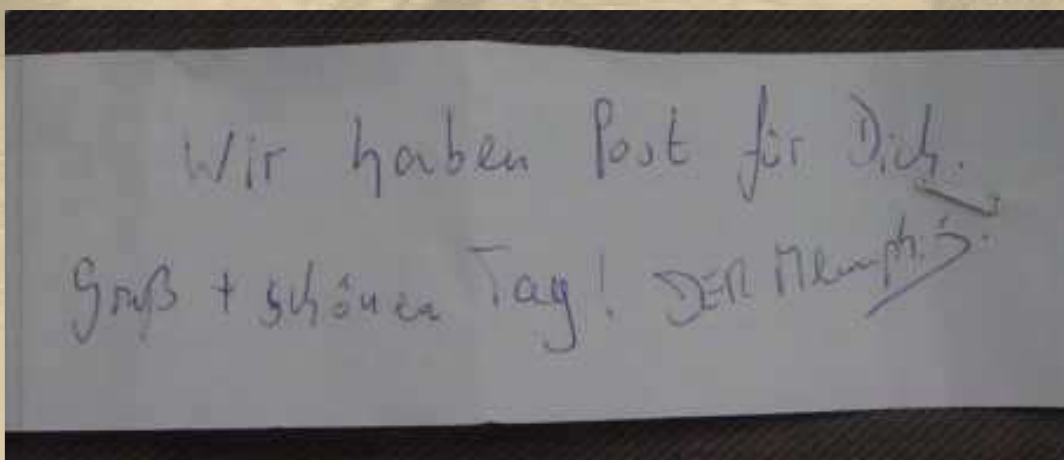 Wir haben Post für Dich.
Gruß + schönen Tag! DER Memphis.